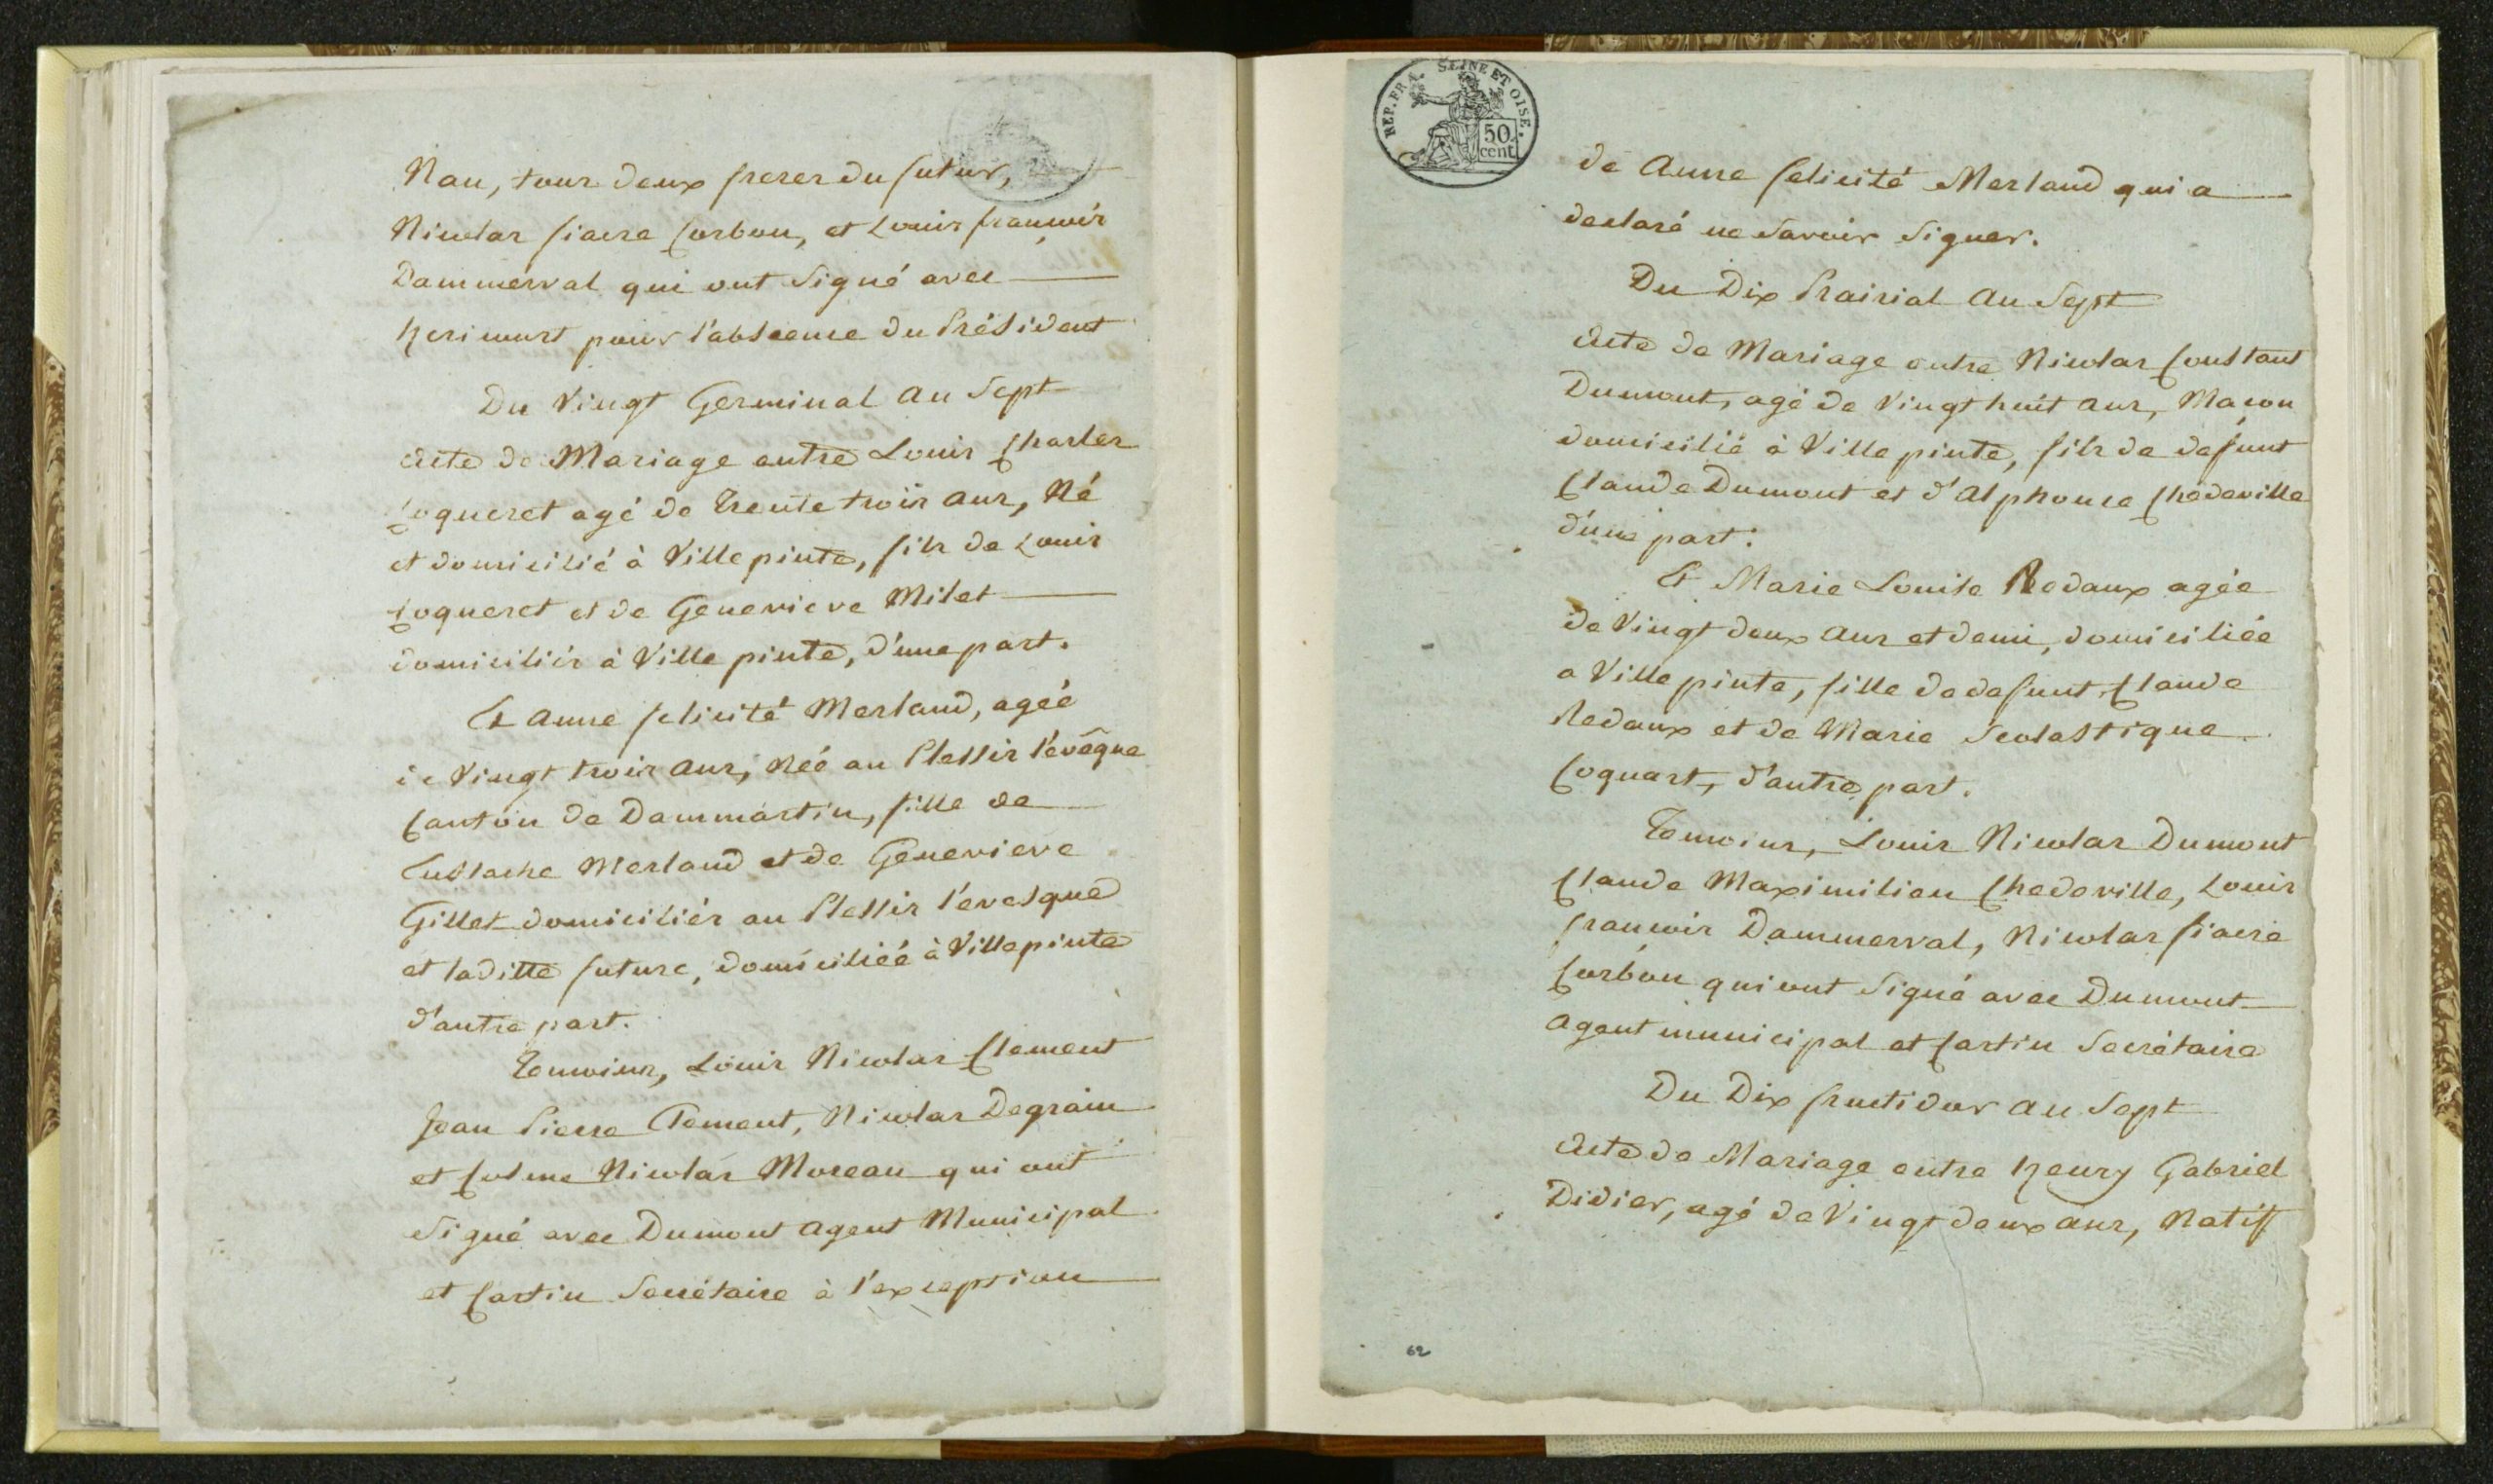 Nau, tous deux freres du futur,
Nicolas fiacre Corbon, et Louis françois
Dammerval qui ont Signé avec
hericourt pour l'abscence du Président
Du Vingt Germinal an Sept
Acte de Mariage entre Louis Charles
Coqueret agé de Trente trois ans, Né
et domicilié à Villepinte, fils de Louis
Coqueret et de Genevieve Milet
domiciliés à Ville pinte, d'une part.
Et Anne felicité Merland, agéé
de Vingt trois ans, Néé au Plessis l'évêque
Canton de Dammartin, fille de
Eustache Merland et de Genevieve
Gillet domiciliés au Plessis l'evesque
et laditte future, domiciliéé à Villepinte
d'autre part.
Temoins, Louis Nicolas Clement
Jean Pierre Clement, Nicolas Degrain
et Colme Nicolas Moreau qui ont
Signé avec Dumont Agent Municipal
et Cartin Secrétaire à l'exception
REP. FRA. SEINE ET OISE.
50
cent
de Anne felicité Merland qui a
declaré ne Savoir Signer.
Du Dix Prairial An Sept
Acte de Mariage entre Nicolas Constant
Dumont, agé de Vingt huit ans, Maçon
domicilié à Ville pinte, fils de defunt
Claude Dumont et d'Alphonse Chédeville
d'une part.
Et Marie Louise Redaux agée
de Vingt deux ans et demi, domiciliée
a Ville pinte, fille de defunt Claude
Redaux et de Marie Scolastique
Coquart, d'autre part.
Temoins, Louis Nicolas Dumont
Claude Maximilien Chedeville, Louis
françois Dammerval, Nicolas fiacre
Corbon qui ont Signé avec Dumont
Agent municipal et Cartin Secrétaire
Du Dix fructidor an Sept
Acte de Mariage entre henry Gabriel
Didier, agé de Vingt deux ans, Natif
62